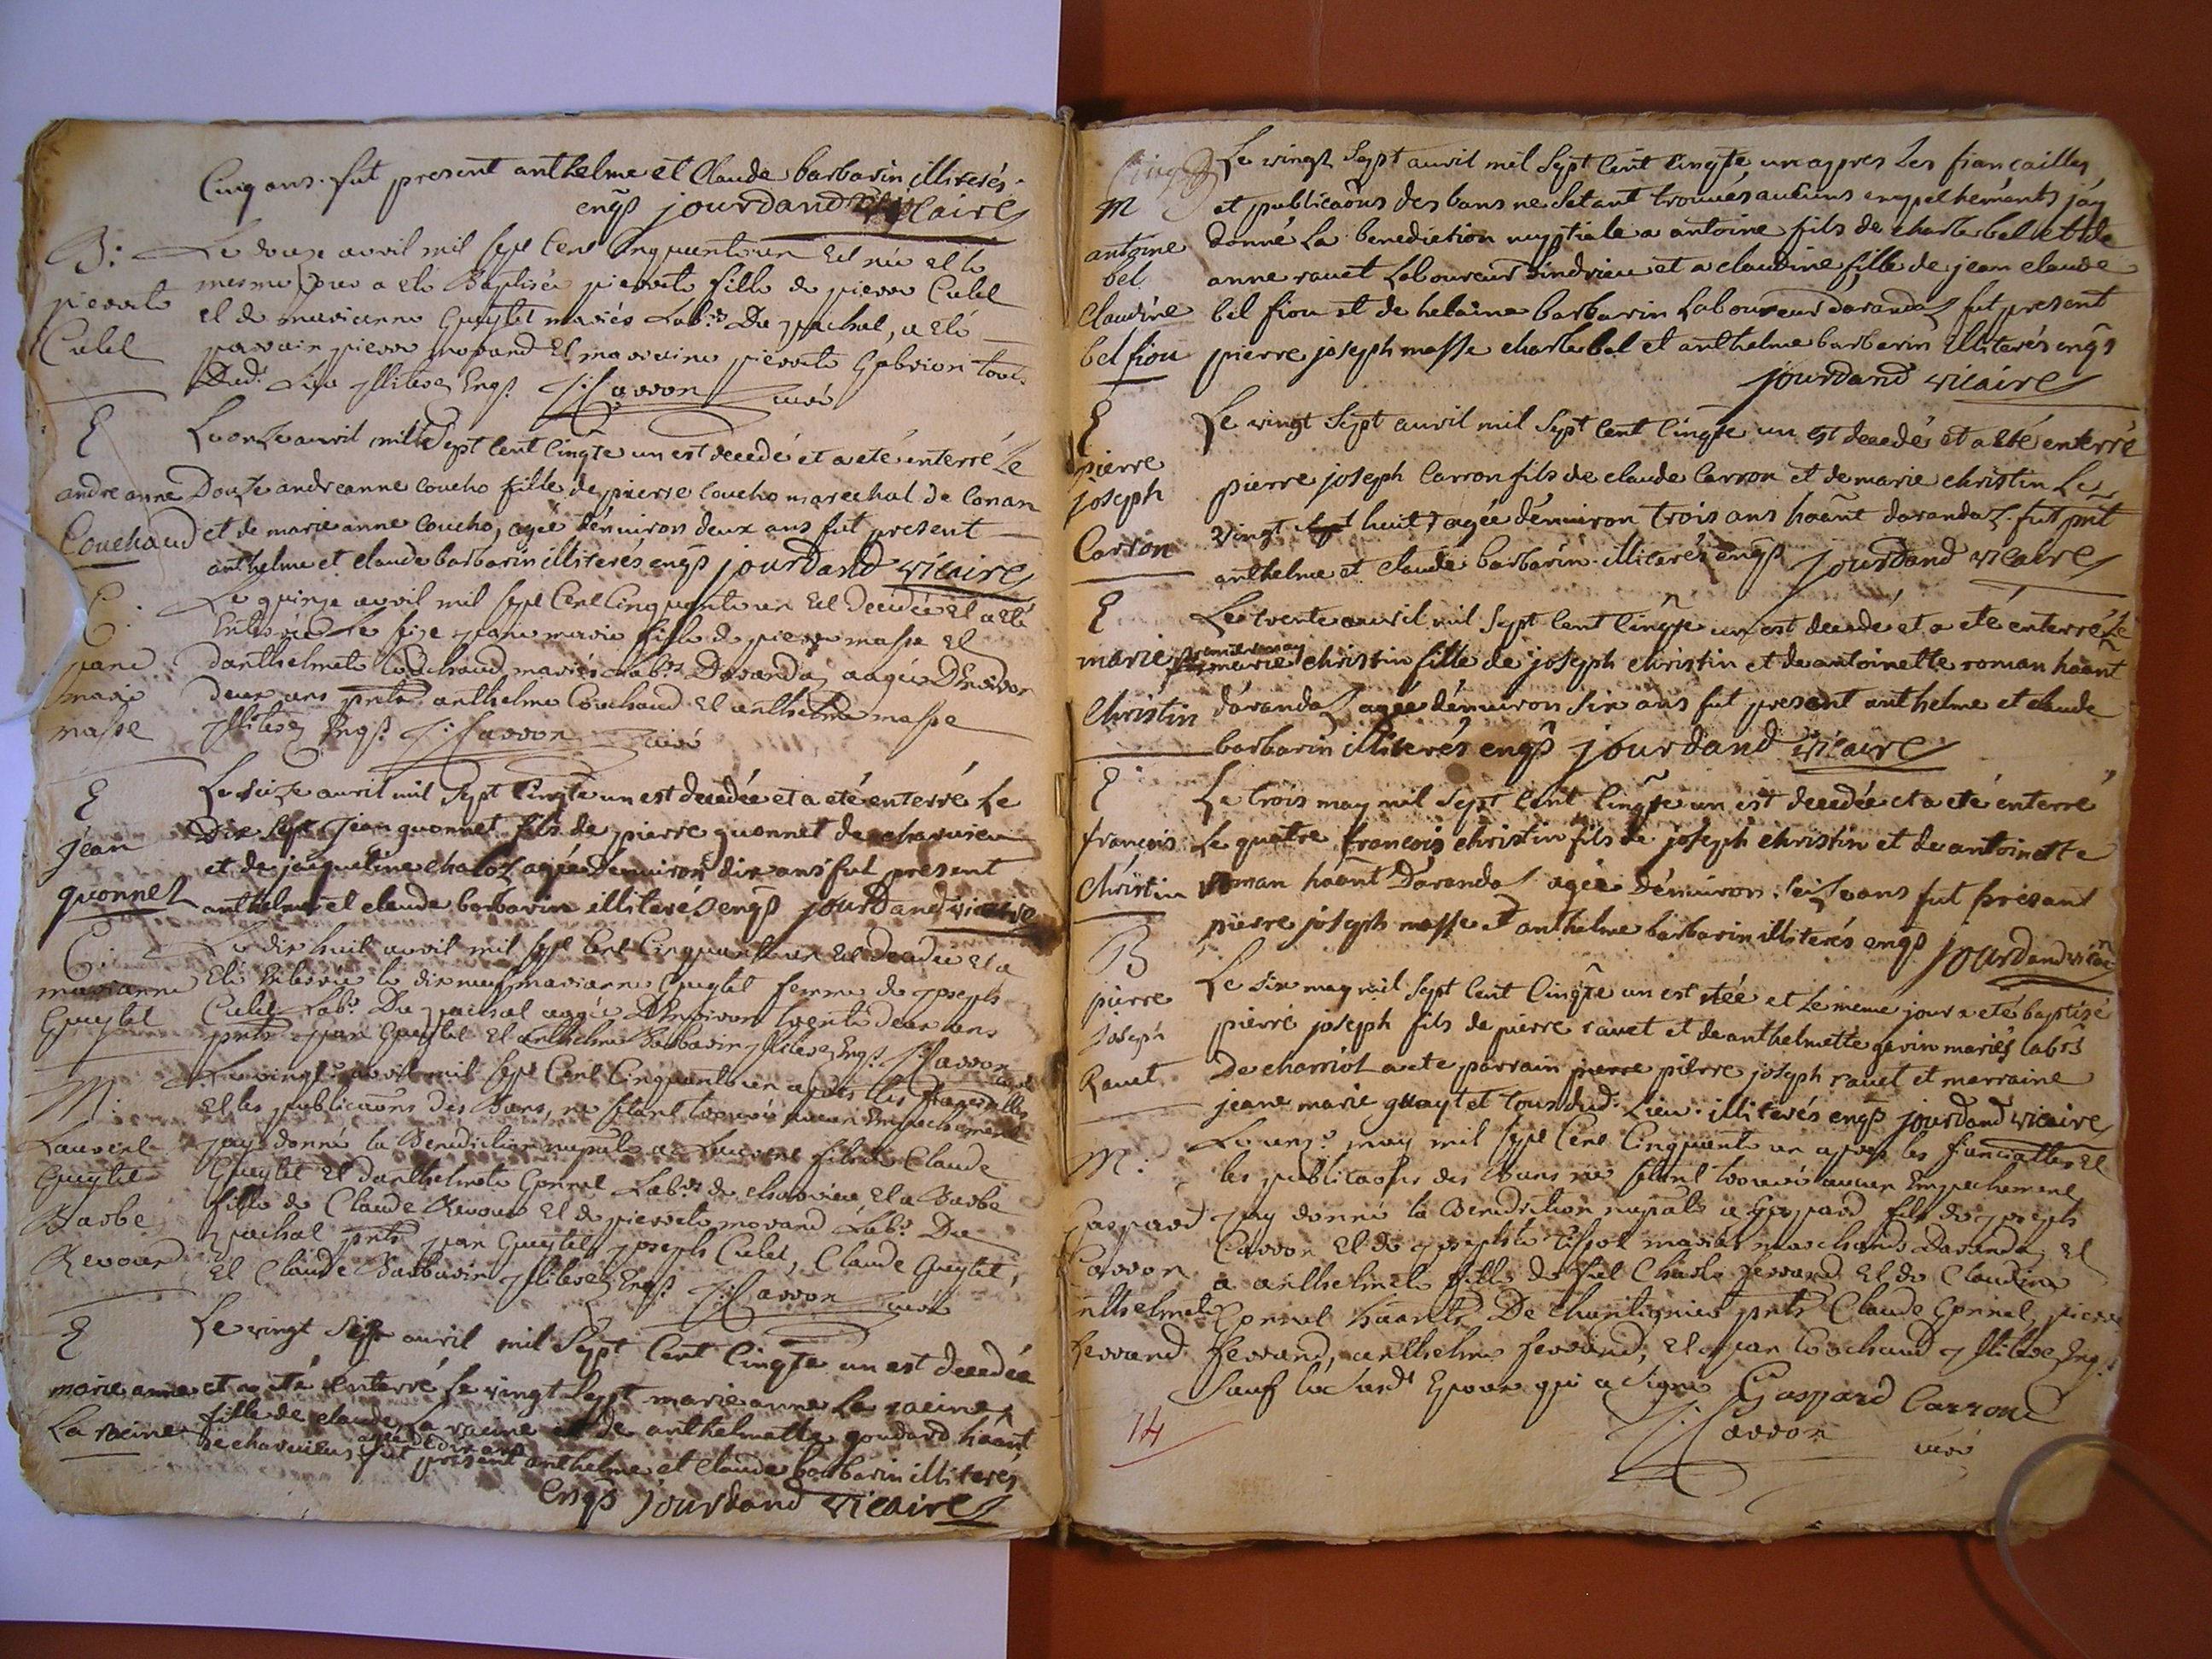 Cinq ans. fut present anthelme et Claude barbarin illiterés
engs jourdand vicaire
B: Le douze avril mil sept Cent Cinquante un Est née et le
pierrete mesme jour a eté Baptisée pierrete fille de pierre Culet
Culet et de marianne Gueytet mariés Lab.rs Du pachal, a eté
parrain pierre morand Et marraine pierrete Gabrion tous
Dud. Lieu illiterez Engs. J: Carron curé
E Le onze avril mil Sept Cent Cingte un est decedé et a eté enterré Le
andre anne Douze andreanne coucho fille de pierre coucho marechal de Conan
Couchaud et de marie anne coucho, agée d'environ deux ans fut present
anthelme et claude barbarin illiterés engs jourdand vicaire
E: Le quinze avril mil sept Cent Cinquante un Est decedée Et a eté
Enterrée Le seize jeane marie fille de pierre masse Et
jeane danthelmete Couchaud mariés Lab.rs Darandaz aagée D'Environ
marie deux ans pnts anthelme Couchaud Et anthelme masse
masse illiterez Engs. J: Carron curé
E Le seize avril mil Sept Cingte un est decedée et a eté enterré Le
jean Dix Sept Jean quonnet fils de pierre quonnet de charvieu
quonnet et de jacqueline chaloz agée d'environ dix ans fut present
anthelme et claude barbarin illiterés engs jourdand vicaire
E: Le dix huit avril mil sept Cent Cinquante un Est decedée Et a
marianne Eté Enterrée le dix neuf marianne Gueytet femme de joseph
Gueytet Culet Lab.r Du pachal aagée D'Environ trente deux ans
pnts jean Gueytet Et anthelme Barbarin illiterez Engs. J: Carron
curé
M: Le vingt avril mil sept Cent Cinquante un apres les fiancailles
Et les publicaons des Bans, ne s'etant trouvé aucun Empechement
Laurent jay donné la Benediction nuptiale a Laurent fils de Claude
Gueytet Gueytet Et danthelmete Gonnet Lab.rs de charvieu Et a Barbe
Barbe fille de Claude Revour Et de pierrete morand Lab.r Du
Revourd pachal pnts jean Gueytet, joseph Culet, Claude Gueytet,
Et Claude Barbarin illiterez Engs. J: Carron curé
E Le vingt Six avril mil Sept Cent Cingte un est decedée
marie anne et a eté enterré Le vingt Sept marie anne La racine
La racine fille de claude La racine et de anthelmette goudard háánt
de charvieux agée de dix ans fut present anthelme et Claude barbarin illiterés
engs jourdand vicaire
Le vingt Sept avril mil Sept Cent Cingte un apres Les fiancailles
M et publicaõns des bans ne Setant trouvés aucuns empechements jáy
antoine donné La benediction nuptiale a antoine fils de charle bel et de
bel anne ravet Laboureur dindrieu et a claudine fille de jean claude
Claudine bel fiou et de helaine barbarin Laboureur darandaz fut present
bel fiou pierre joseph masse charle bel et anthelme barbarin illiterés engs
jourdand vicaire
E Le vingt Sept avril mil Sept Cent Cingte un est decedé et a eté enterré
pierre pierre joseph Carron fils de claude Carron et de marie christin Le
joseph vingt sept huit agée d'environ trois ans haãnt darandaz. fut pnt
Carron anthelme et claude barbarin illiterés engs jourdand vicaire
E Le trente avril mil Sept Cent Cingte un est decedé et a eté enterré Le
marie premier may marie christin fille de joseph christin et de antoinette roman haant
Christin dárandaz agée d'environ Six ans fut present anthelme et claude
barbarin illiterés engs jourdand vicaire
E Le trois may mil Sept Cent Cingte un est decedée et a eté enterré
françois Le quatre françois christin fils de joseph christin et de antoinette
Christin roman haãnt Darandaz agée d'environ seize ans fut présant
pierre joseph masse et anthelme barbarin illiterés engs jourdand vicaire
B Le six may mil Sept Cent Cingte un est née et Le meme jour a eté baptizé
pierre pierre joseph fils de pierre ravet et de anthelmette gevin mariés labrs
joseph De charriot a ete parrain pierre pierre joseph ravet et marraine
Ravet jeane marie guaytet tous dud. Lieu. illiterés engs jourdand vicaire
M: Le onze may mil sept Cent Cinquante un apres les fiancailles Et
les publicaons des Bans ne s'etant trouvé aucun Empechement
Gaspard jay donné la Benediction nuptiale a Gaspard fils de joseph
Carron Carron Et de josephte Tissot mariés marchands Darandaz Et
anthelmete a anthelmete fille de feu Charle ferrand Et de Claudine
ferrand Gonnet haants De Chantignieu pnts Claude Gonnet, pierre
ferrand, anthelme ferrand, Et jean Couchaud illiterez Engs
Sauf Led. Susd. Epoux qui a Signé Gaspard Carrond
J: Carron curé
14